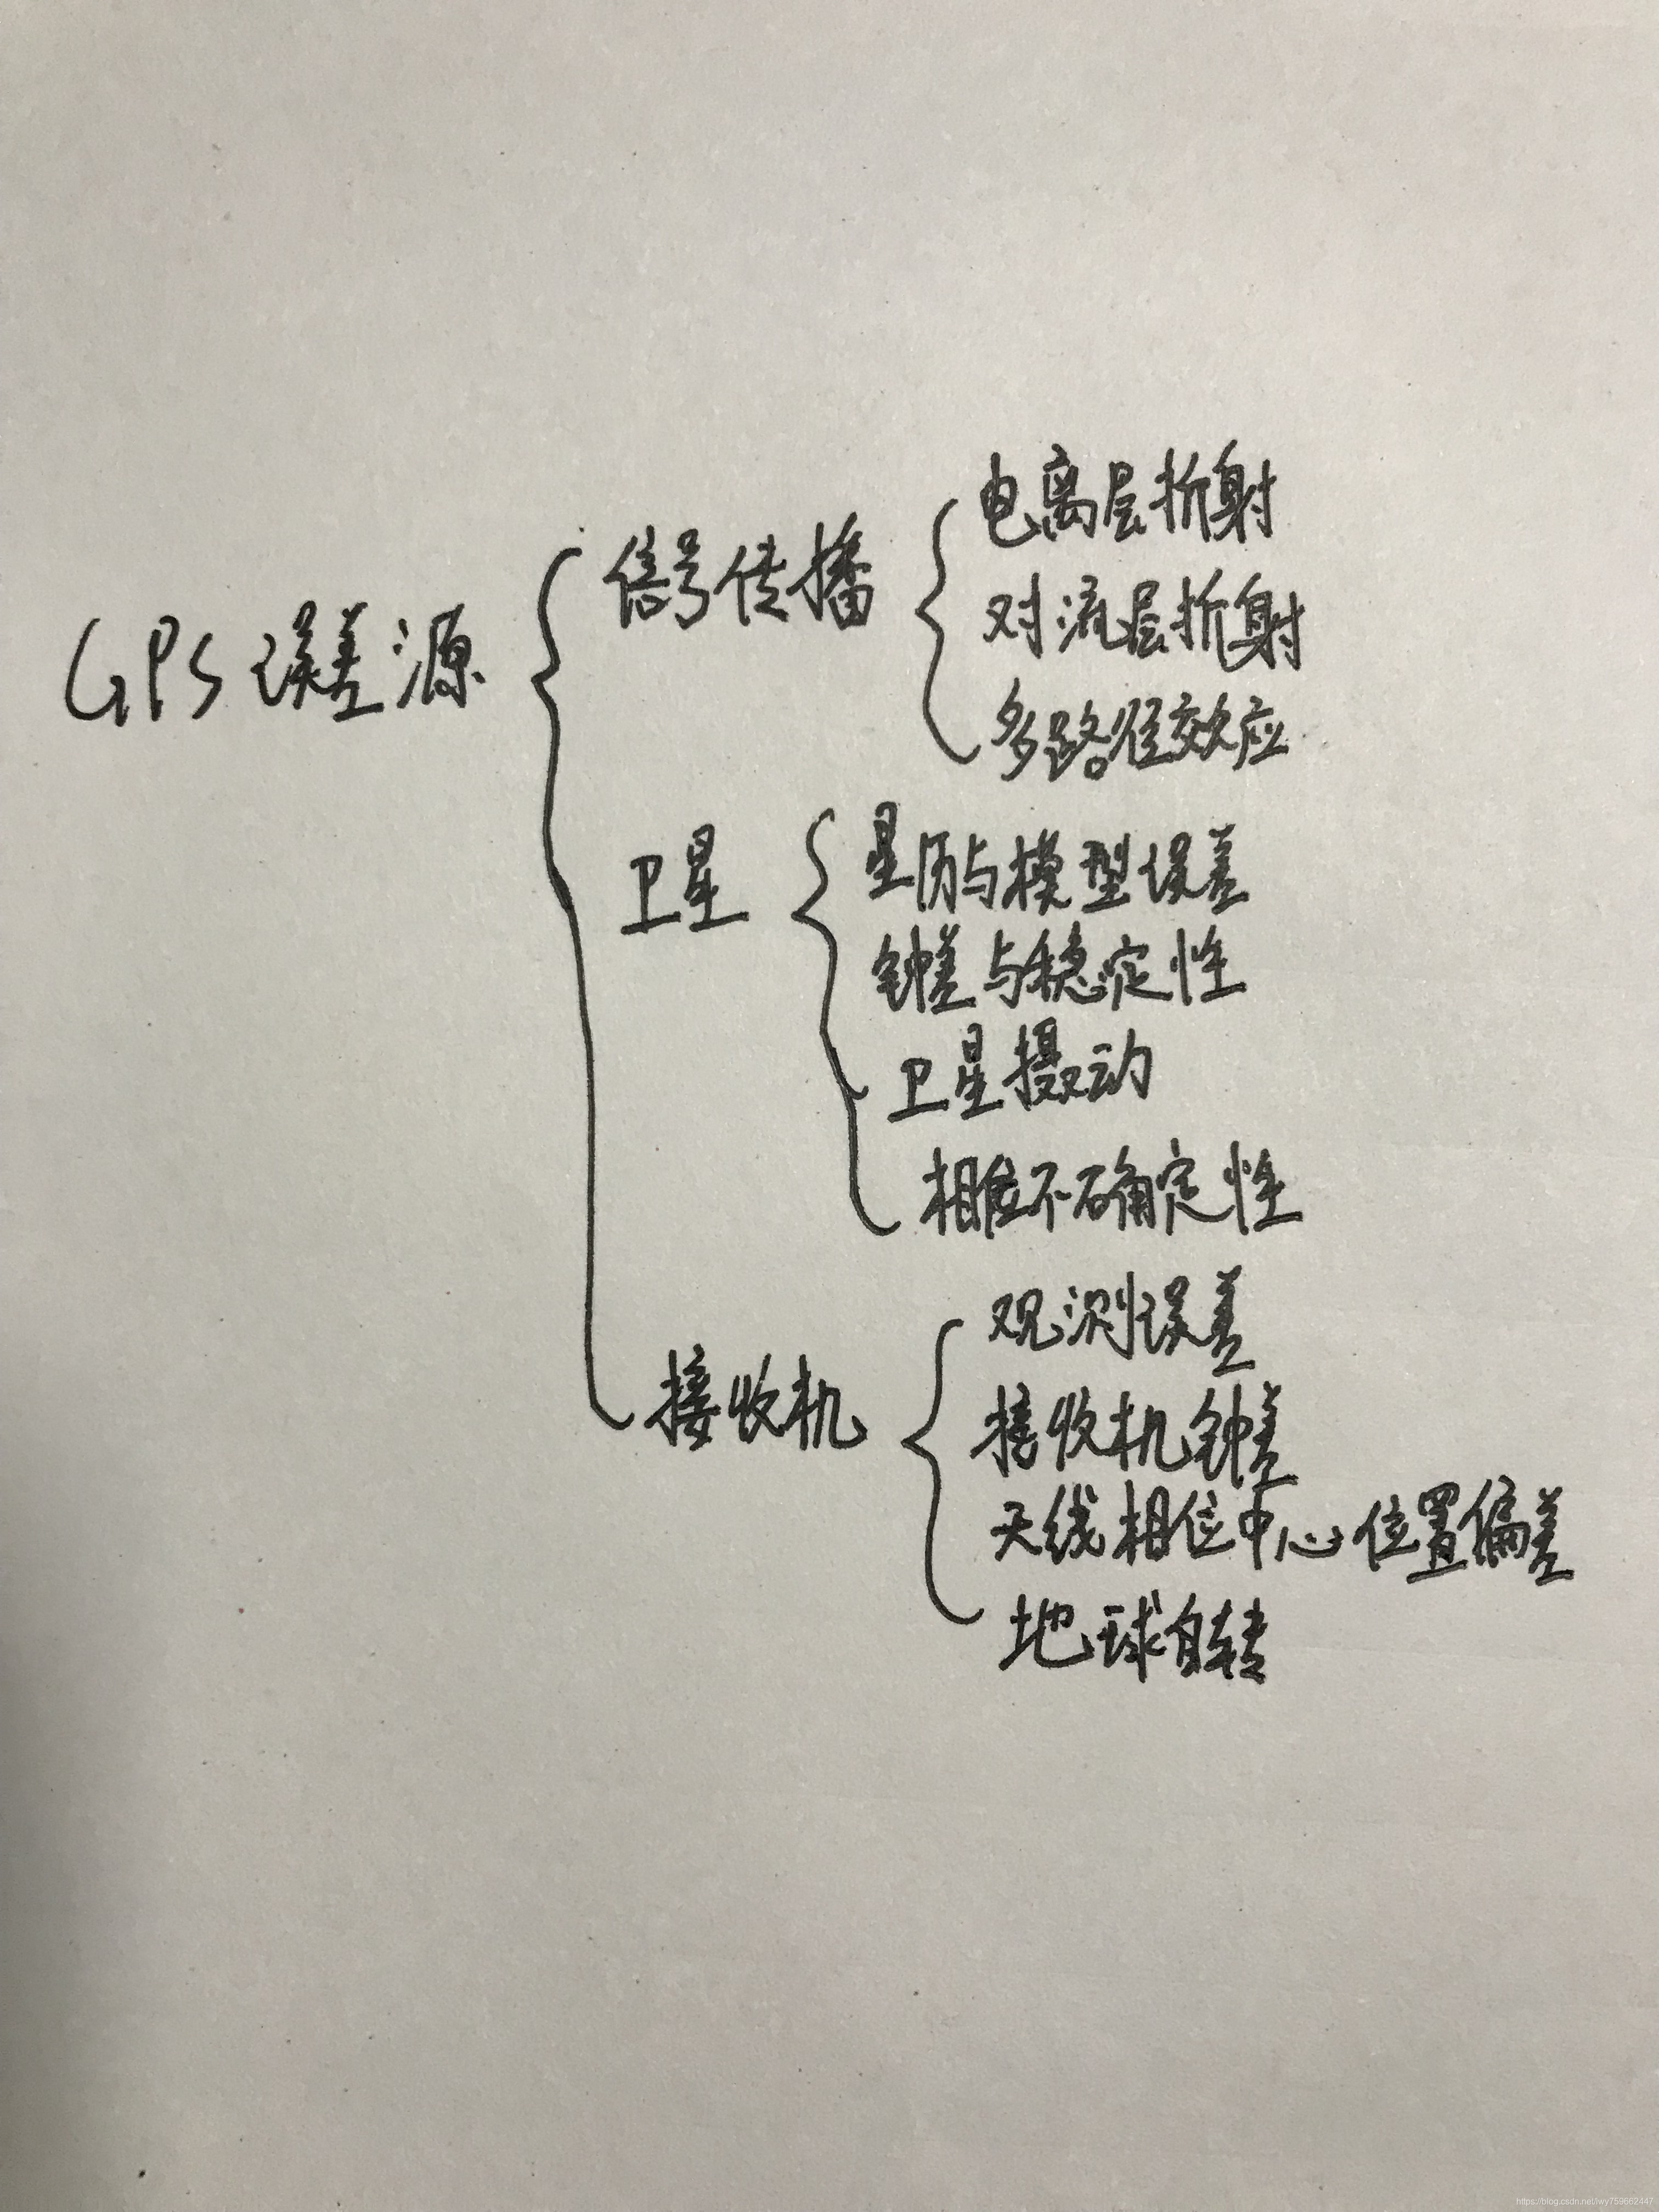 GPS误差源
信号传播
电离层折射
对流层折射
多路径效应
卫星
星历与模型误差
钟差与稳定性
卫星摄动
相位不确定性
接收机
观测误差
接收机钟差
天线相位中心位置偏差
地球自转
https://blog.csdn.net/lwy759662447